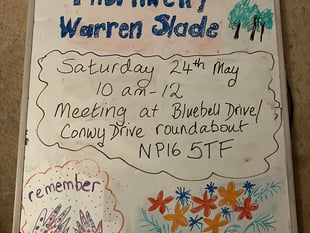 Thornwell/
Warren Slade
Saturday 24th May
10 am-12
Meeting at Bluebell Drive/
Conwy Drive roundabout
NP16 5TF
remember